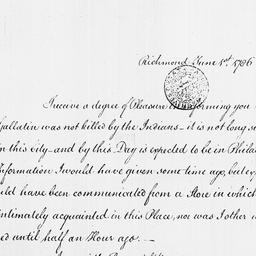 Richmond June 1st 1786
I receive a degree of Pleasure in informing you
Gallatin was not killed by the Indians – it is not long s
in this city – and by this Day is expected to be in Phila
nformation I would have given some time ago, but ex
uld have been communicated from a Store in which
intimately acquainted in this Place, nor was I other w
ed until half an Hour ago. —